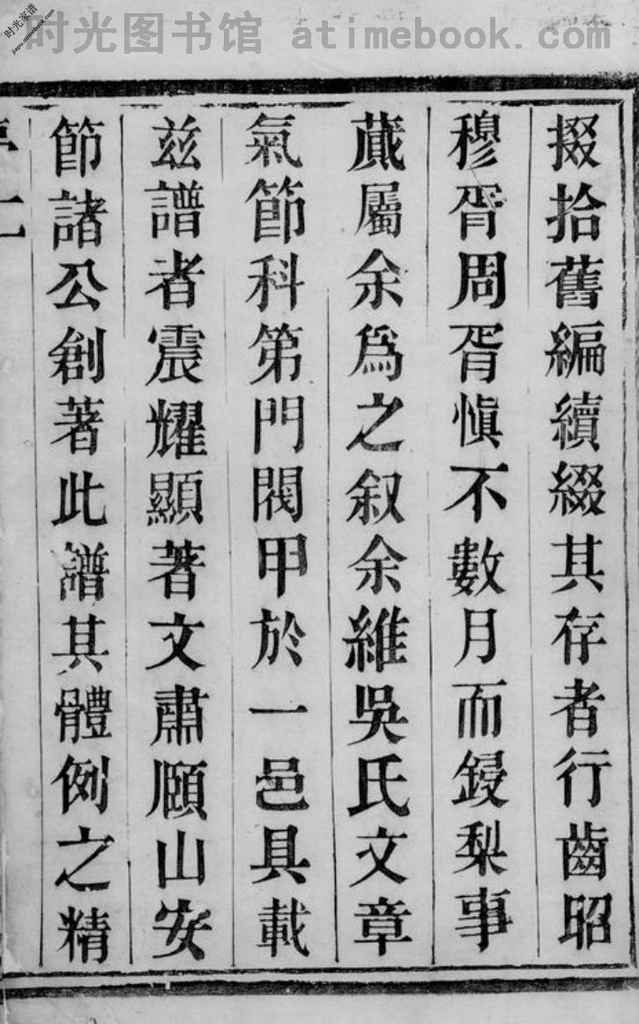 时光图书馆 atimebook.com
时光家谱
掇拾舊編續綴其存者行齒昭
穆胥周胥慎不數月而鋟梨事
蕆屬余為之叙余維吳氏文章
氣節科第門閥甲於一邑具載
兹譜者震耀顯著文肅頤山安
節諸公創著此譜其體例之精